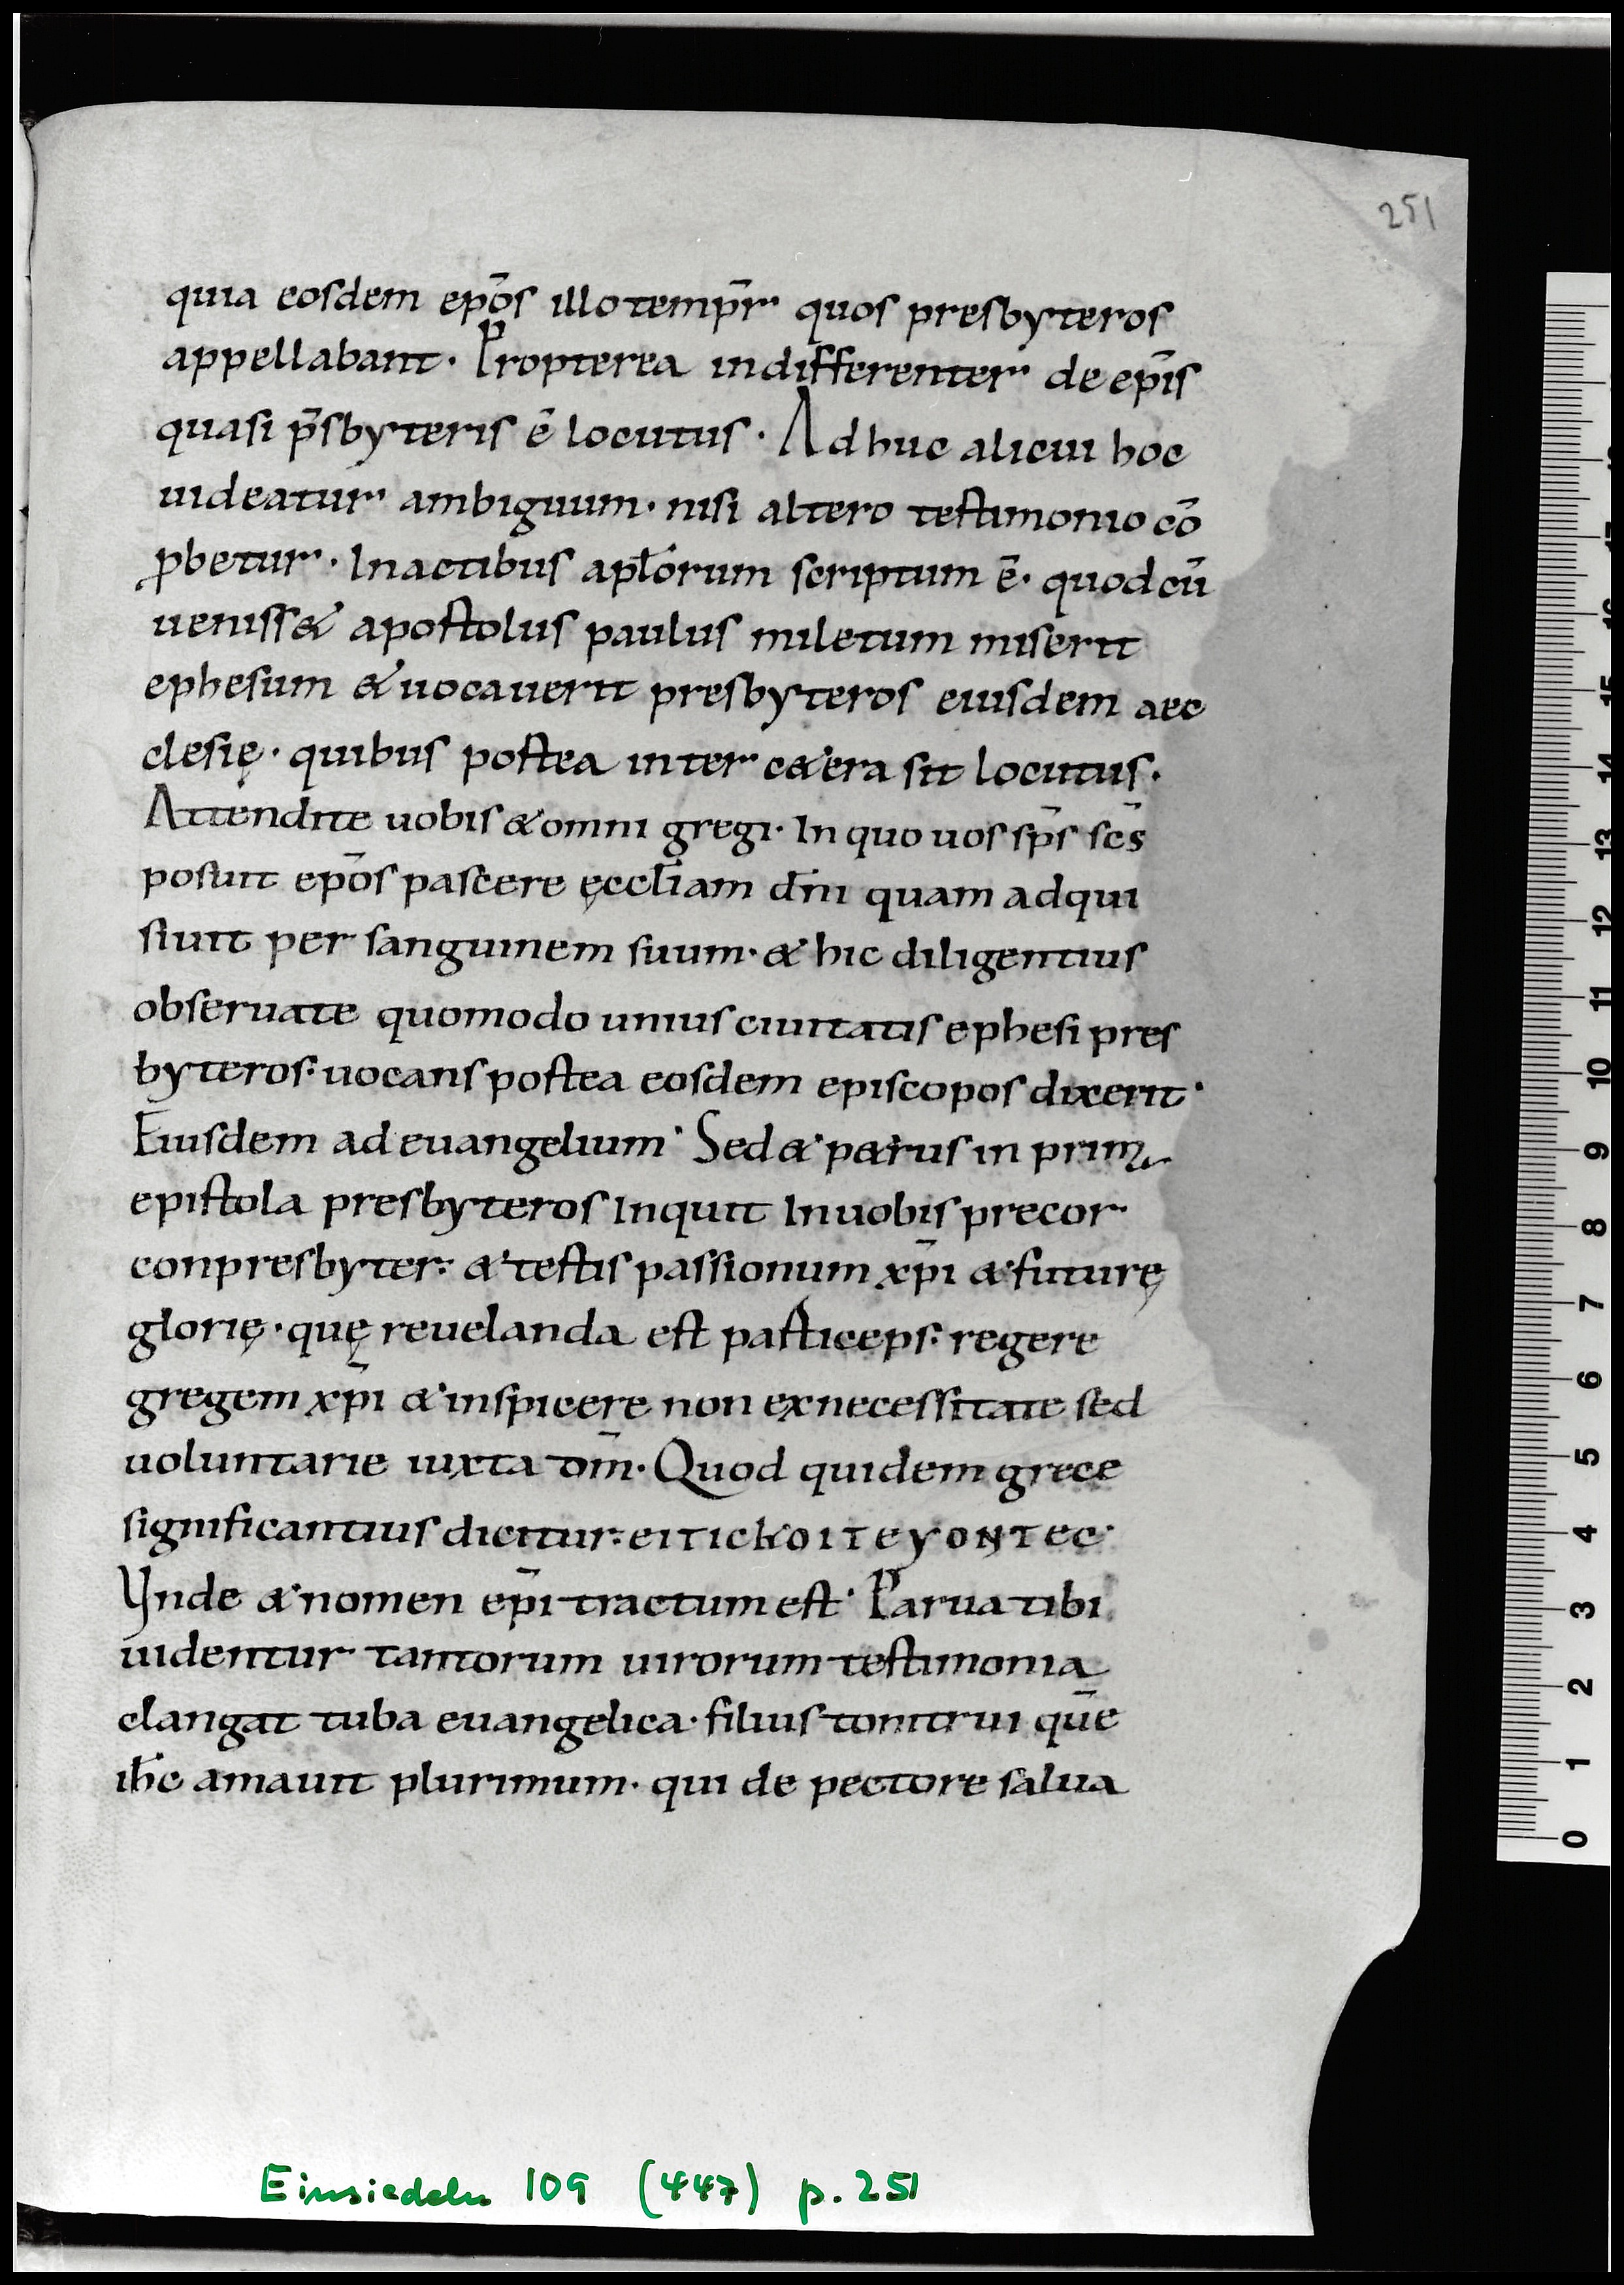 251
quia eosdem ep̄os illo temp̄r quos presbyteros
appellabant. Propterea indifferenter de ep̄is
quasi p̄sbyteris ē locutus. Ad huc alicui hoc
uideatur ambiguum. nisi altero testimonio cō
ꝓbetur. In actibus apl̄orum scriptum ē. quod cū
ueniss& apostolus paulus miletum miserit
ephesum & uocauerit presbyteros eiusdem aec
clesię. quibus postea inter c&era sit locutus.
Attendite uobis & omni gregi. In quo uos sp̄s sc̄s
posuit ep̄os pascere ęccl̄iam dn̄i quam adqui
siuit per sanguinem suum. & hic diligentius
obseruate quomodo unius ciuitatis ephesi pres
byteros: uocans postea eosdem episcopos dixerit.
Eiusdem ad euangelium. Sed & p&rus in prima
epistola presbyteros Inquit In uobis precor
conpresbyter: & testis passionum xp̄i & futurę
glorię. quę reuelanda est pasticeps: regere
gregem xp̄i & inspicere non ex necessitate sed
uoluntarie iuxta dm̄. Quod quidem grece
significantius dicitur: ειτιcκοιτεyοντεc.
Ynde & nomen ep̄i tractum est. Parua tibi
uidentur tantorum uirorum testimonia
clangat tuba euangelica. filius tonitrui quē
ih̄c amauit plurimum. qui de pectore salua
Einsiedeln 109 (447) p. 251
0 1 2 3 4 5 6 7 8 9 10 11 12 13 14 15 16 17